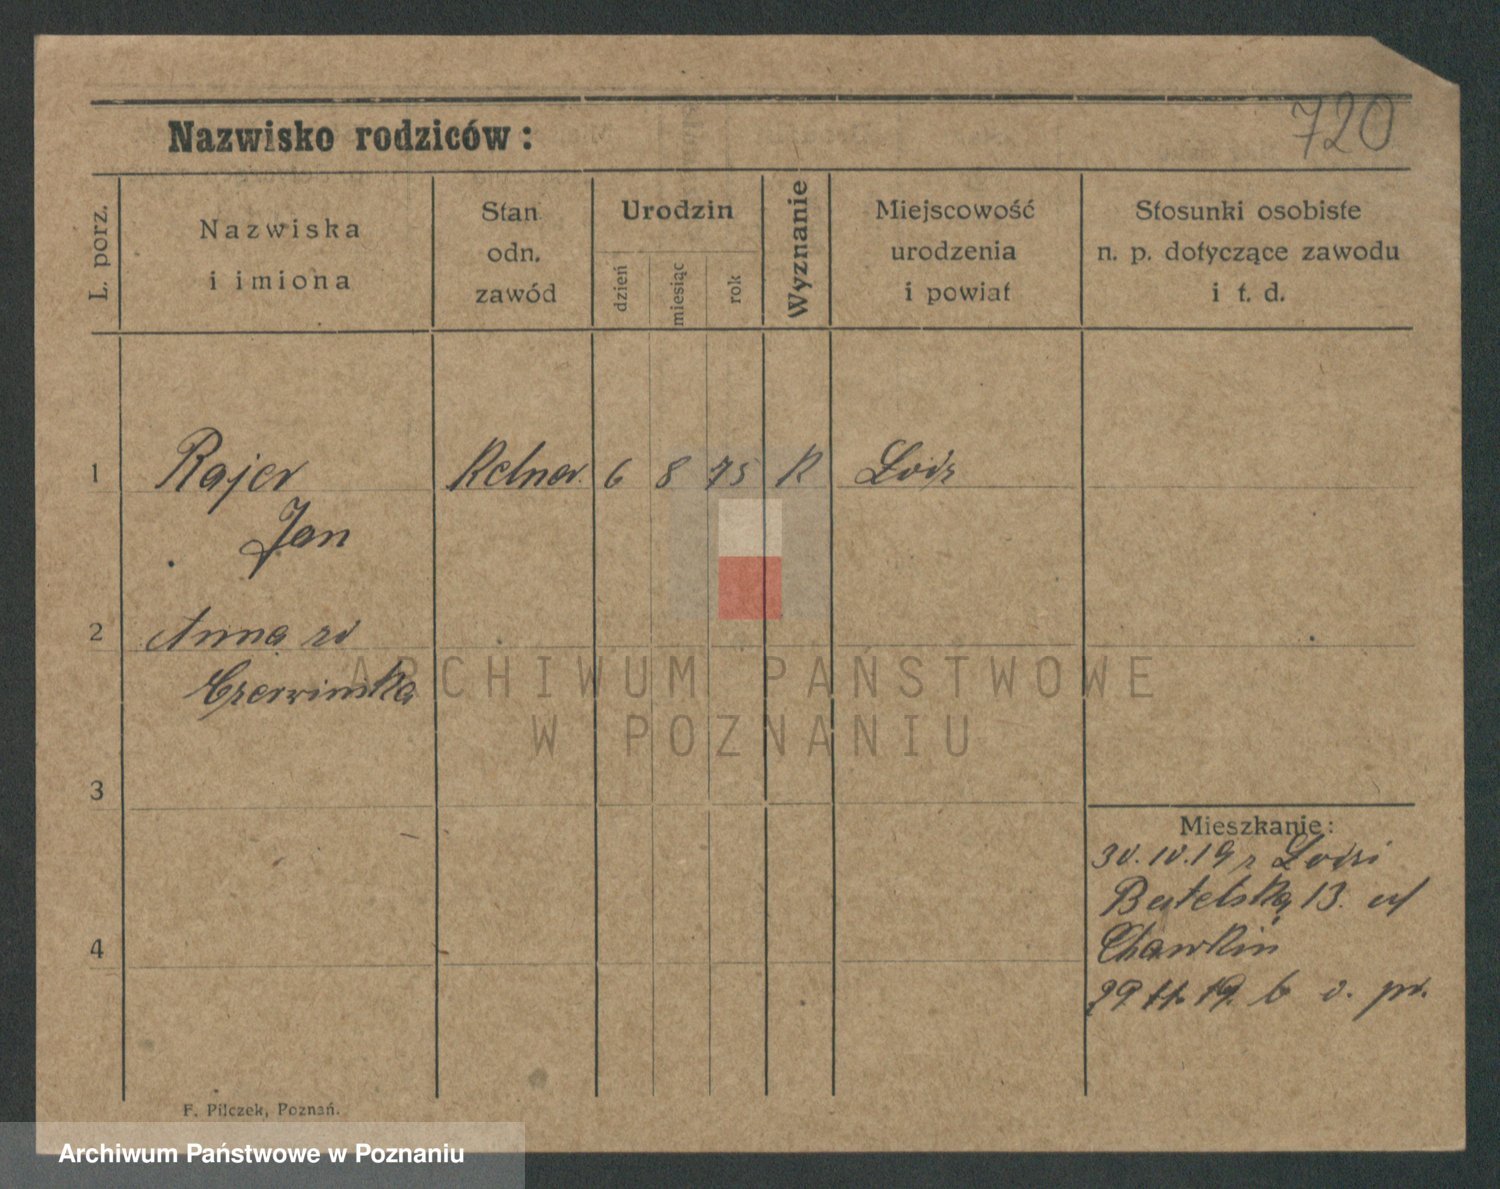 720
Nazwisko rodziców:
L. porz.
Nazwiska
i imiona
Stan
odn.
zawód
Urodzin
dzień
miesiąc
rok
Wyznanie
Miejscowość
urodzenia
i powiat
Stosunki osobiste
n. p. dotyczące zawodu
i t. d.
1 Rajer Kelner 6 8 75 K Lodz
Jan
2 Anna
Czerwinska
3
Mieszkanie:
30.10.19 z Lodzi
13.
4
29 11. 19. b
ARCHIWUM PAŃSTWOWE
W POZNANIU
F. Pilczek, Poznań.
Archiwum Państwowe w Poznaniu